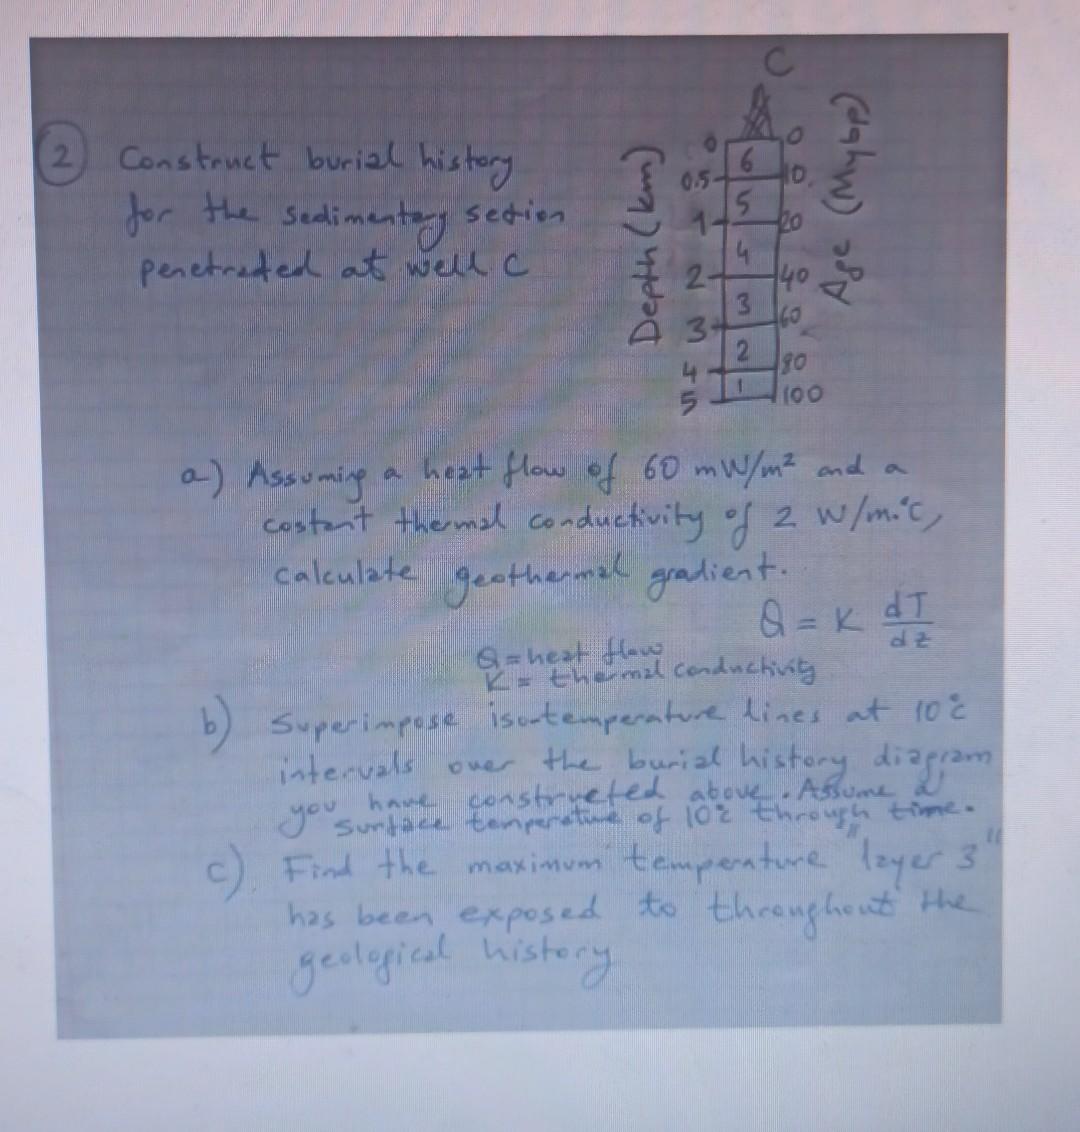 C
2 Construct burial history
for the sedimentary section
penetrated at well C
Depth (km)
Age (Mybp)
0 0
6
0.5 10
5
1 20
4
2 40
3
3 60
2
4 80
1
5 100
a) Assuming a heat flow of 60 mW/m² and a
costant thermal conductivity of 2 W/m.°C,
calculate geothermal gradient.
Q = K dT/dz
Q = heat flow
K = thermal conductivity
b) Superimpose iso-temperature lines at 10°C
intervals over the burial history diagram
you have constructed above. Assume a
surface temperature of 10°C through time.
c). Find the maximum temperature "layer 3"
has been exposed to throughout the
geological history